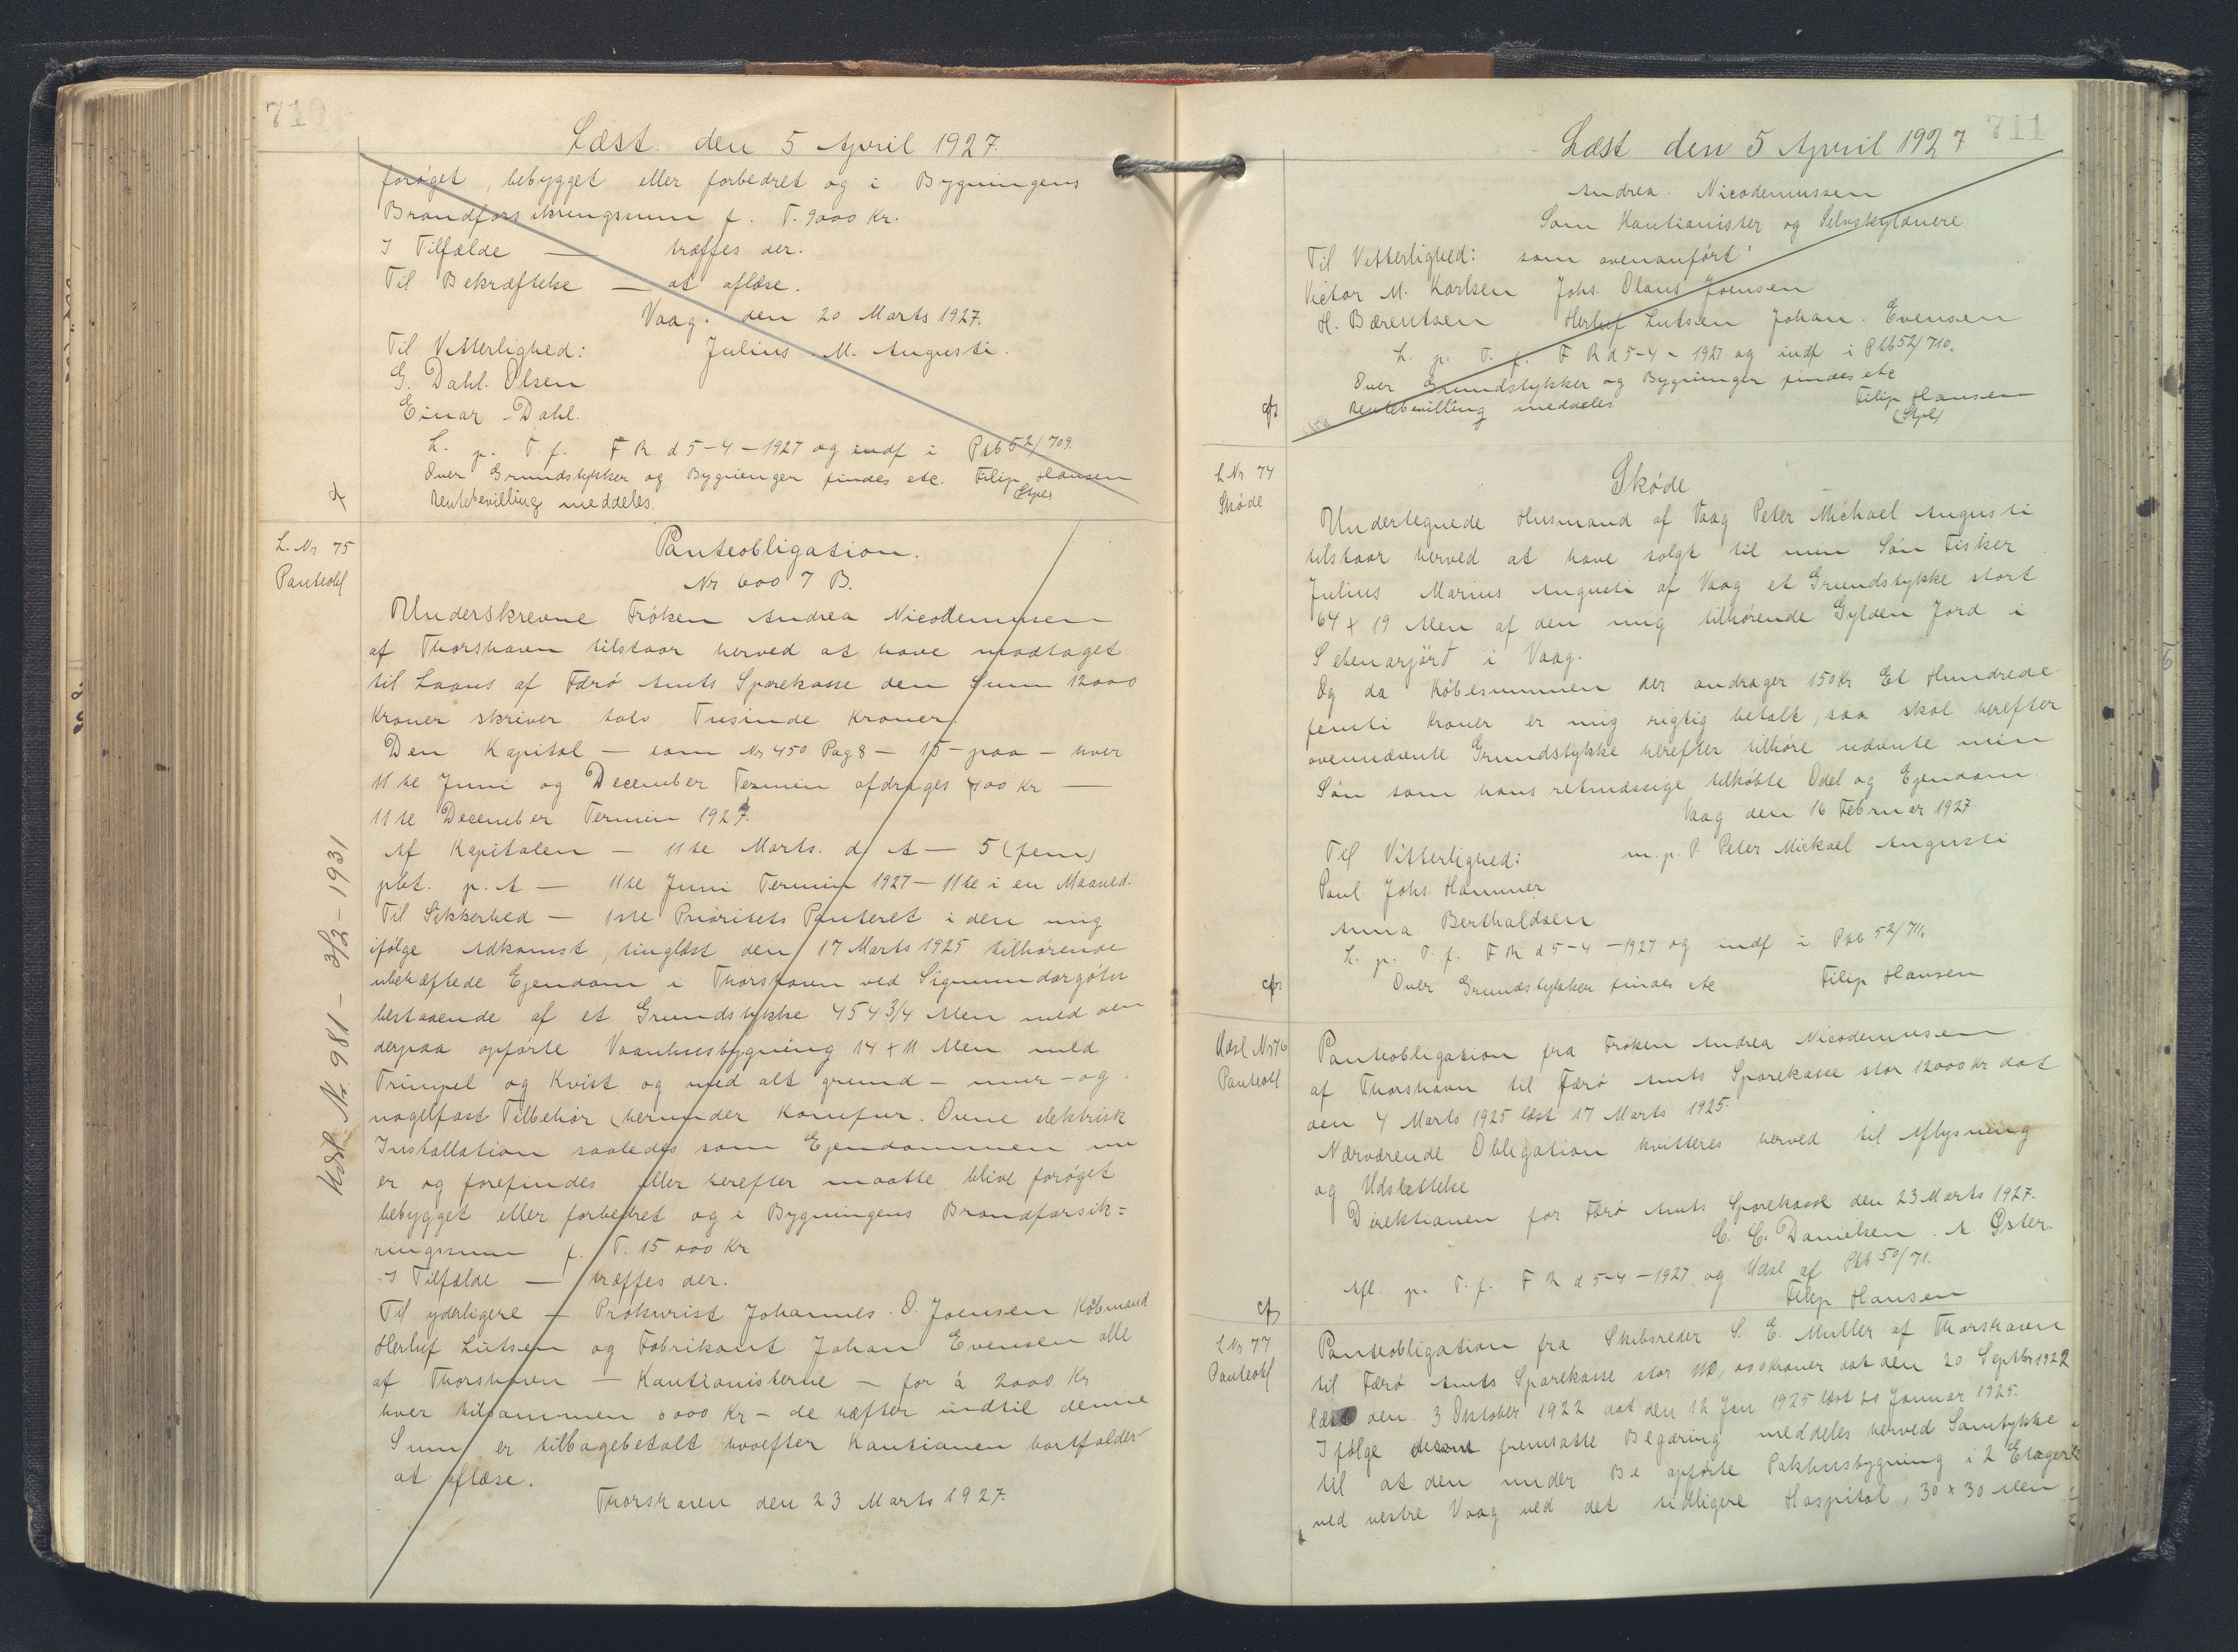 710
Læst den 5 April 1927.
forøget, bebygget eller forbedret og i Bygningens
Brandforsikringssum f. T. 9000 Kr.
I Tilfælde — træffes der.
Til Bekræftelse — at aflæse.
Vaag. den 20 Marts 1927.
Til Vitterlighed: Julius M. Augusti.
G. Dahl. Olsen
Einar Dahl.
L. p. T. f. F R d 5-4-1927 og indf i Ptb 52/709.
Over Grundstykker og Bygninger findes etc. Filip Hansen
Rentebevilling meddeles. Stpl
cf
L. Nr 75
Panteobl
Panteobligation.
Nr 600 7 B.
Underskrevne Frøken Andrea Nicodemusen
af Thorshavn tilstaar herved at have modtaget
til Laans af Færø Amts Sparekasse den Sum 12000
Kroner skriver tolv Tusinde Kroner.
Den Kapital — som Nr 450 Pag 8 — 15 — paa — hver
11te Juni og December Termin afdrages 400 Kr —
11te December Termin 1927.
Af Kapitalen — 11te Marts. d. A — 5 (fem)
pCt. p. A — 11te Juni Termin 1927 — 11te i en Maaned.
Til Sikkerhed — 1ste Prioritets Panteret i den mig
ifølge Adkomst, tinglæst den 17 Marts 1925 tilhørende
ubehæftede Ejendom i Thorshavn ved Sigmundargøtu
bestaaende af et Grundstykke 454 3/4 Alen med den
derpaa opførte Vaanhusbygning 14 x 11 Alen med
Trimpel og Kvist og med alt grund- mur- og
nagelfast Tilbehør (herunder Komfur. Ovne elektrisk
Installation saaledes som Ejendommen nu
er og forefindes eller herefter maatte blive forøget
bebygget eller forbedret og i Bygningens Brandforsik=
ringssum f. T. 15000 Kr
I Tilfælde — træffes der.
Til yderligere — Prokurist Johannes. O. Joensen Købmand
Herluf Lützen og Fabrikant Johan Evensen alle
af Thorshavn — Kautionisterne — for á 2000 Kr
hver tilsammen 6000 Kr — de hæfter indtil denne
Sum er tilbagebetalt hvorefter Kautionen bortfalder
at aflæse.
Thorshavn den 23 Marts 1927.
Udsl. Nr. 981 - 3/2 - 1931
711
Læst den 5 April 1927
Andrea. Nicodemussen
Som Kautionister og Selvskyldnere
Til Vitterlighed: som ovenanført:
Victor M. Karlsen Johs. Olaus Joensen
H. Bærentsen Herluf Lutsen Johan. Evensen
L. p. T. f. F R d 5-4-1927 og indf i Ptb 52/710.
Over Grundstykker og Bygninger findes etc
Rentebevilling meddeles Filip Hansen
(Stpl)
cf
L Nr 74
Skøde
Skøde
Undertegnede Husmand af Vaag Peter Michael Augusti
tilstaar herved at have solgt til min Søn Fisker
Julius Marius Augusti af Vaag et Grundstykke stort
64 x 19 Alen af den mig tilhørende Gylden Jord i
Sebenarjørd i Vaag.
Og da Købesummen der andrager 150 Kr Et Hundrede
femti Kroner er mig rigtig betalt, saa skal herefter
ovennævnte Grundstykke herefter tilhøre nævnte min
Søn som hans retmæssige tilkøbte Odel og Ejendom.
Vaag den 16 Februar 1927.
Til Vitterlighed: m. p. P. Peter Mickael Augusti
Paul Johs. Hammer
Anna Bertholdsen
L. p. T. f. F R d 5-4-1927 og indf i Ptb 52/711.
Over Grundstykker findes etc Filip Hansen
cf.
Udsl Nr 76
Panteobl
Panteobligation fra Frøken Andrea Nicodemusen
af Thorshavn til Færø Amts Sparekasse stor 12000 Kr dat
den 4 Marts 1925 læst 17 Marts 1925.
Nærværende Obligation kvitteres herved til Aflysning
og Udslettelse
Direktionen for Færø Amts Sparekasse den 23 Marts 1927.
C. C. Danielsen. A. Øster.
Afl. p. T. f. F R d 5-4-1927 og Udsl af Ptb 50/71.
Filip Hansen
cf
L Nr 77
Panteobl
Panteobligation fra Skibsreder S. E. Muller af Thorshavn
til Færø Amts Sparekasse stor Kroner dat den 20 Septbr 1922
læst den 3 Oktober 1922 dat den 12 Jan 1925 læst 20 Januar 1925.
Ifølge derom fremsatte Begæring meddeles herved Samtykke
til at den under B e opførte Pakhusbygning i 2 Etager
ved vestre Vaag ved det tidligere Hospital, 30 x 30 Alen